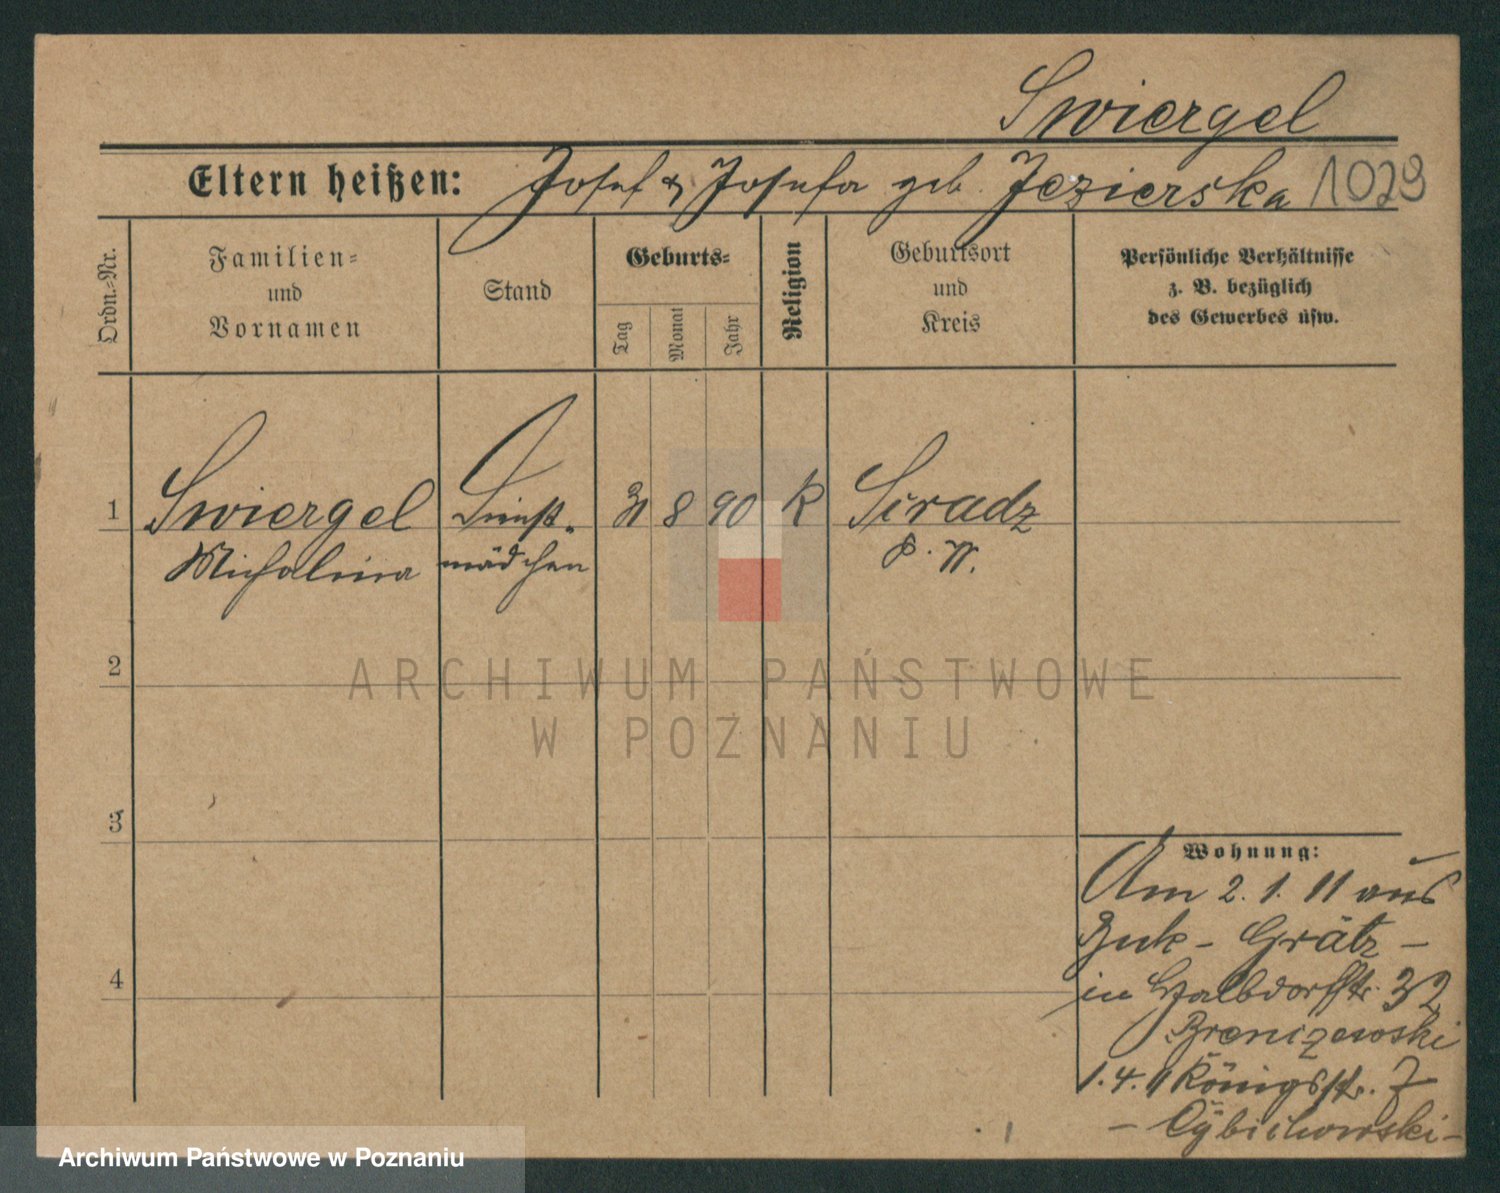 Swiergel
Eltern heißen: Josef & Josefa geb. Jezierska 1029
Ordn.-Nr.
Familien- und Vornamen
Stand
Geburts-
Tag
Monat
Jahr
Religion
Geburtsort und Kreis
Persönliche Verhältnisse
z. B. bezüglich
des Gewerbes usw.
1 Swiergel Dienst- 31 8 90 K Siradz
Michalina mädchen P. W.
2
3
4
ARCHIWUM PAŃSTWOWE
W POZNANIU
Wohnung:
Am 2.1.11 aus
Buk - Grätz -
in Halbdorffstr. 32
1.4.11 Königsstr. 7
- Cybichowski -
Archiwum Państwowe w Poznaniu